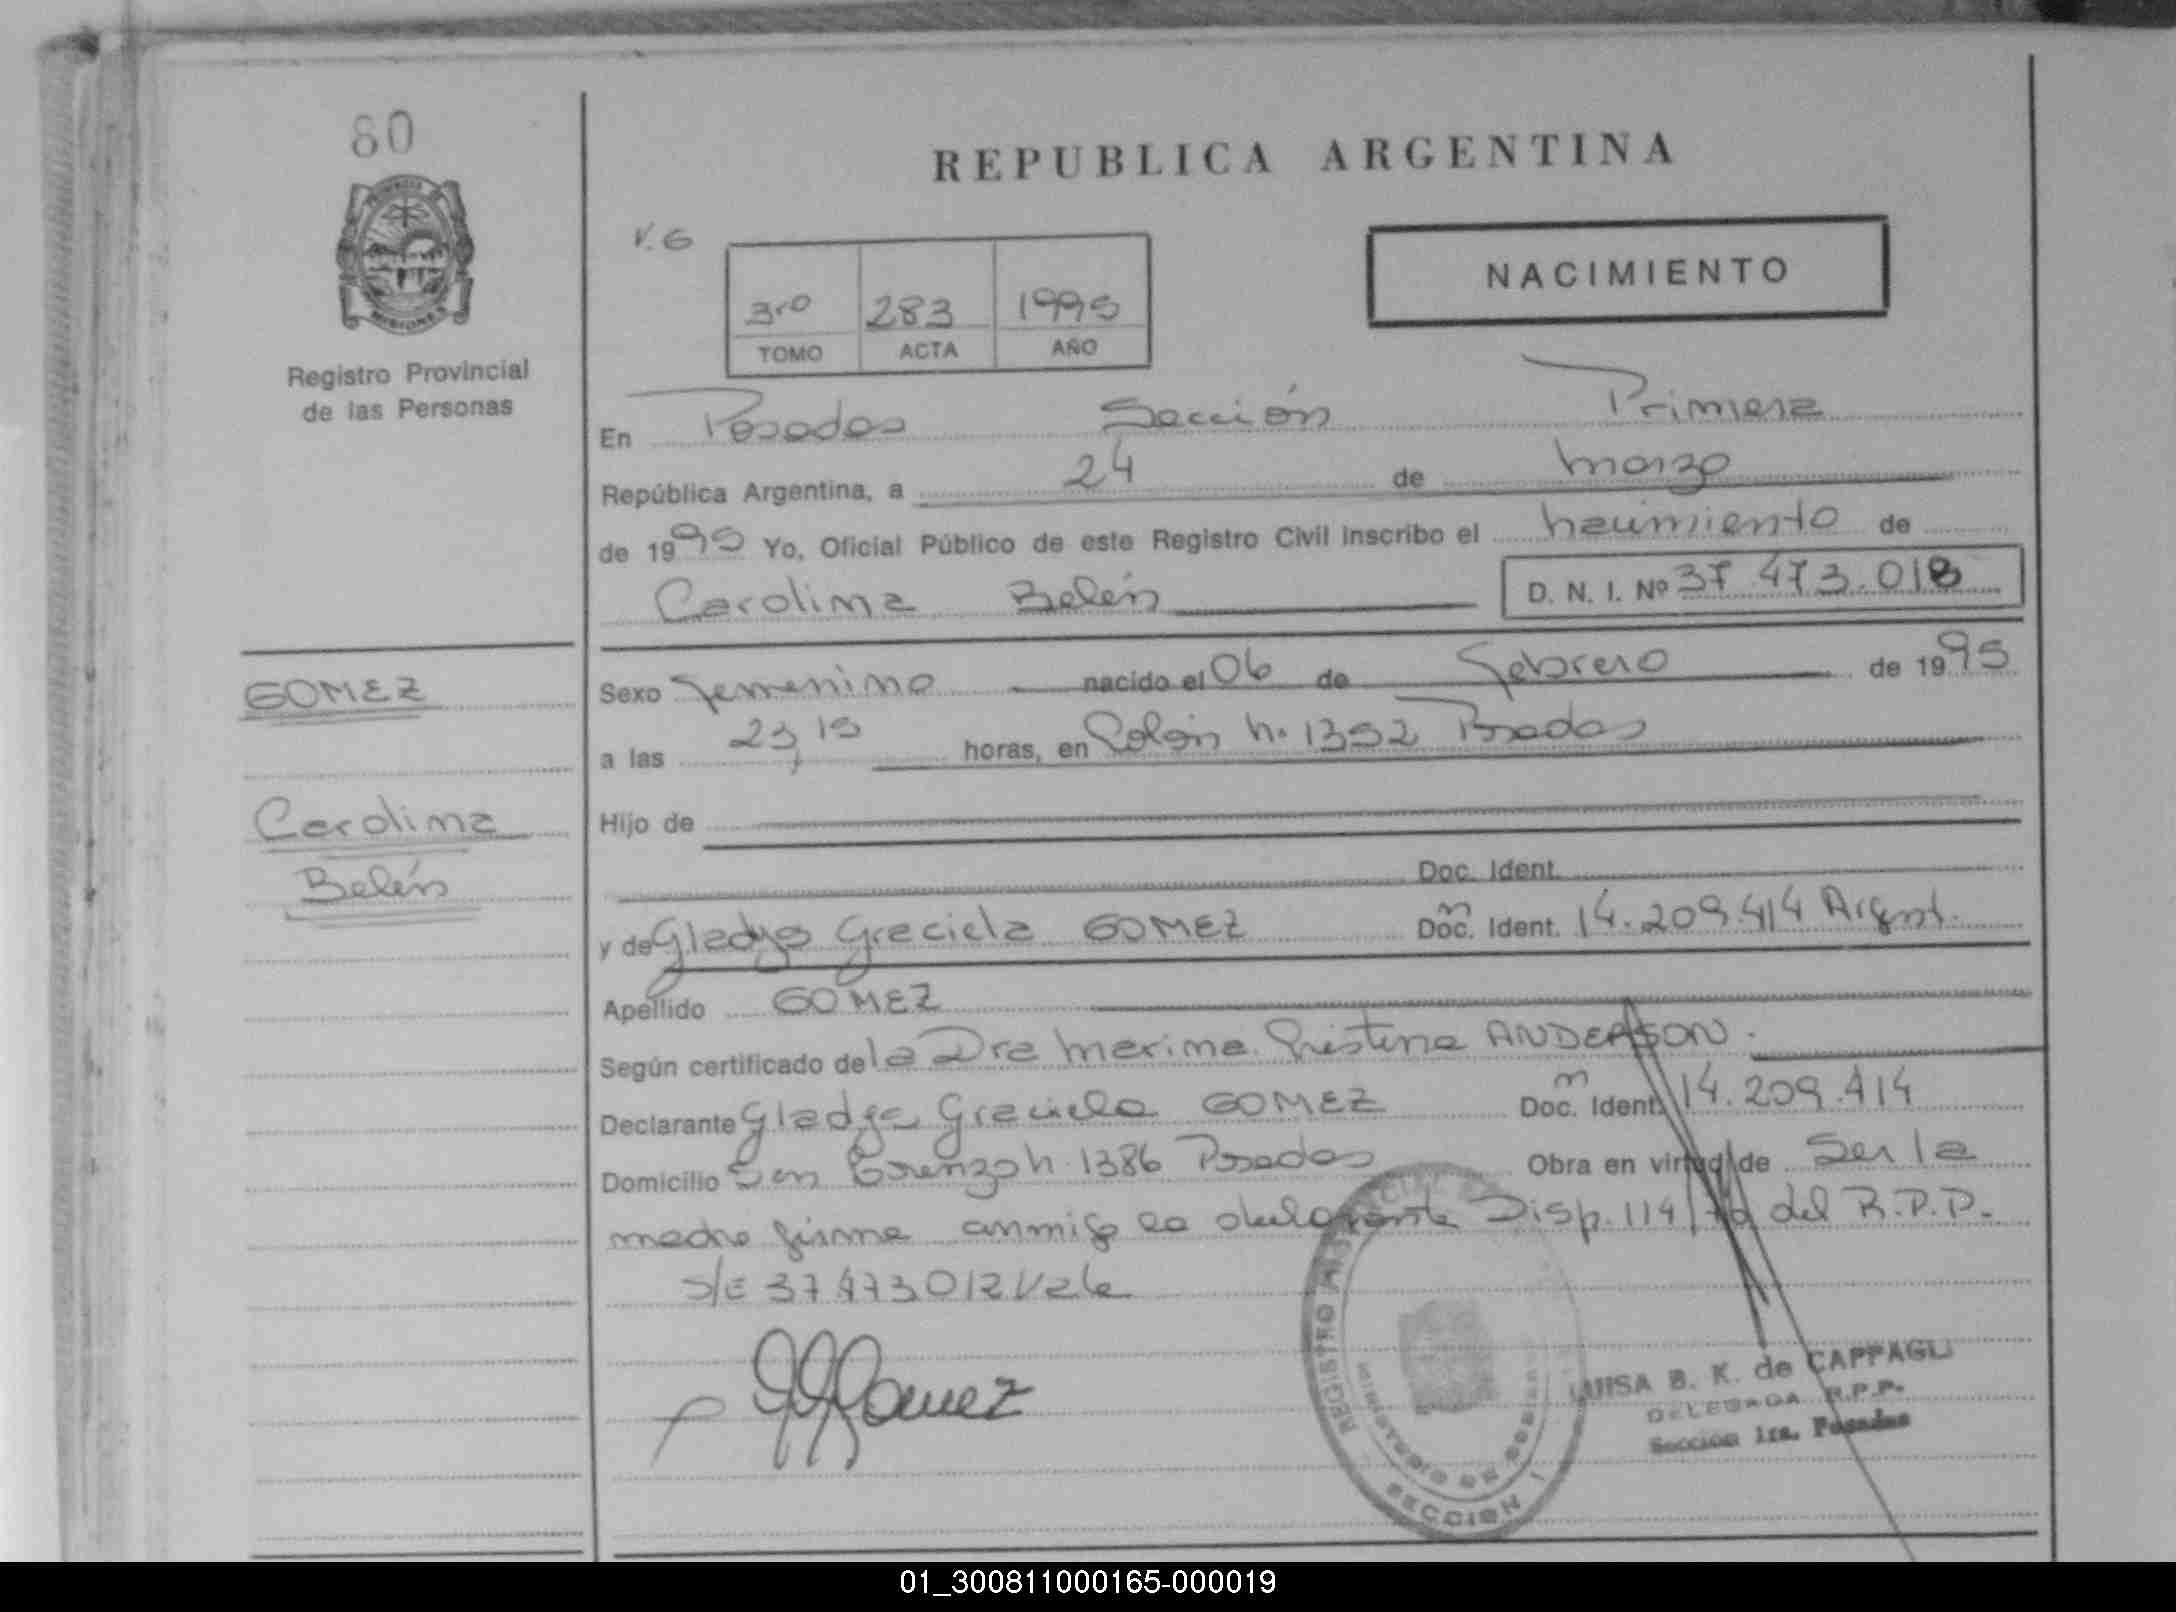 80
REPUBLICA ARGENTINA
V. G
NACIMIENTO
3ro 283 1995
TOMO ACTA AÑO
MISIONES
Registro Provincial
de las Personas
En Posadas Sección Primera
República Argentina, a 24 de marzo
de 1995 Yo, Oficial Público de este Registro Civil inscribo el nacimiento de
Carolina Belén D. N. I. Nº 37.473.018
GOMEZ
Sexo femenino nacido el 06 de febrero de 1995
a las 23,15 horas, en Colón n. 1352 Posadas
Carolina
Belén
Hijo de
Doc. Ident.
y de Gladys Graciela GOMEZ Doc. Ident. m 14.209.414 Argent.
Apellido GOMEZ
Según certificado de la Dra Marina Cristina ANDERSON.
Declarante Gladys Graciela GOMEZ Doc. Ident. m 14.209.414
Domicilio San Lorenzo n. 1386 Posadas Obra en virtud de ser la
madre firma conmigo la declarante Disp. 114/ del R.P.P.
S/E 37473012 Vale
GGGomez
REGISTRO
MINISTERIO DE GOBIERNO
SECCION 1
LUISA B. K. de CAPPAGLI
DELEGADA R.P.P.
Seccion 1ra. Posadas
01_300811000165-000019